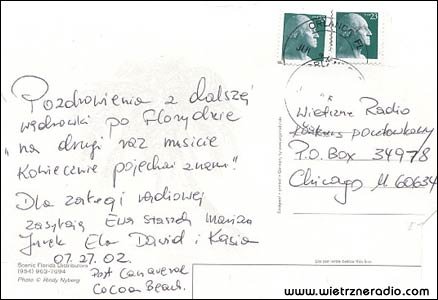 Pozdrowienia z dalszej
wędrówki po Florydzie
"na drugi raz musicie
koniecznie pojechać z nami".
Dla załogi radiowej
zasyłają Ewa Staszek Marian
Jurek Ela David i Kasia
07.27.02.
Port Canaveral
Cocoa Beach.
Scenic Florida Distributors
(954) 963-7694
Photo © Randy Nyberg
23
ORLANDO FL
JUL
Wietrzne Radio
konkurs pocztówkowy
P.O. Box 34978
Chicago Il 60634
Do not write below this line
www.wietrzneradio.com